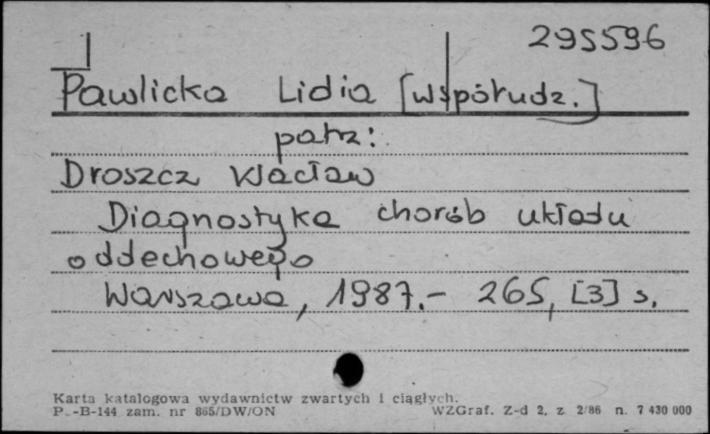 295596
Pawlicka Lidia [współudz.]
patrz:
Droszcz Wacław
Diagnostyka chorób układu
oddechowego
Warszawa, 1987.- 265, [3] s.
Karta katalogowa wydawnictw zwartych i ciągłych.
P.-B-144 zam. nr 865/DW/ON WZGraf. Z-d 2, z 2/86 n. 7 430 000